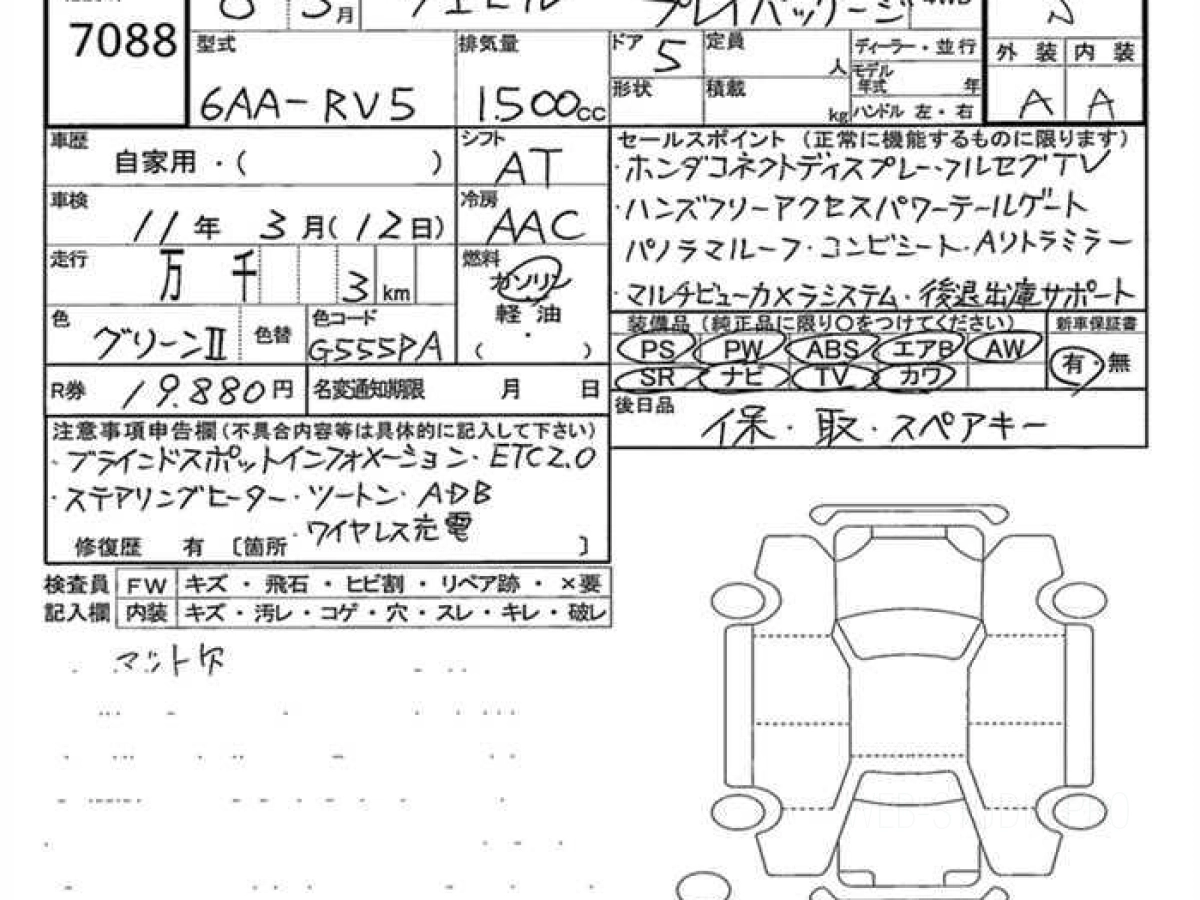 8 3月 ヴェゼル プレイパッケージ 4WD S
7088
型式 6AA-RV5
排気量 1.500cc
ドア 5
定員 人
ディーラー・並行
モデル年式 年
形状
積載 kg
ハンドル 左・右
外装 内装
A A
車歴 自家用・( )
シフト AT
車検 11年 3月(12日)
冷房 AAC
走行 万 千 3 km
燃料 ガソリン
軽油
( ・ )
色 グリーンⅡ
色替
色コード G555PA
R券 19.880円
名変通知期限 月 日
セールスポイント (正常に機能するものに限ります)
・ホンダコネクトディスプレー・フルセグTV
・ハンズフリーアクセスパワーテールゲート
パノラマルーフ・コンビシート・Aリトラミラー
・マルチビューカメラシステム・後退出庫サポート
装備品 (純正品に限り○をつけてください)
新車保証書
PS PW ABS エアB AW
SR ナビ TV カワ
有・無
後日品 保・取・スペアキー
注意事項申告欄(不具合内容等は具体的に記入して下さい)
・ブラインドスポットインフォメーション・ETC2.0
・ステアリングヒーター・ツートン・ADB
・ワイヤレス充電
修復歴 有 〔箇所 〕
検査員 FW キズ・飛石・ヒビ割・リペア跡・×要
記入欄 内装 キズ・汚レ・コゲ・穴・スレ・キレ・破レ
マット欠